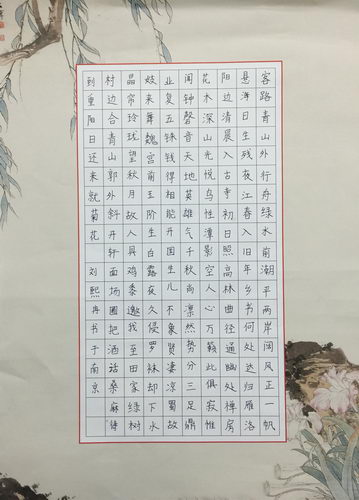 客路青山外行舟绿水前潮平两岸阔风正一帆
悬海日生残夜江春入旧年乡书何处达归雁洛
阳边清晨入古寺初日照高林曲径通幽处禅房
花木深山光悦鸟性潭影空人心万籁此俱寂惟
闻钟磬音天地英雄气千秋尚凛然势分三足鼎
业复五铢钱得相能开国生儿不象贤凄凉蜀故
妓来舞魏宫前玉阶生白露夜久侵罗袜却下水
晶帘玲珑望秋月故人具鸡黍邀我至田家绿树
村边合青山郭外斜开轩面场圃把酒话桑麻待
到重阳日还来就菊花 刘熙冉书于南京